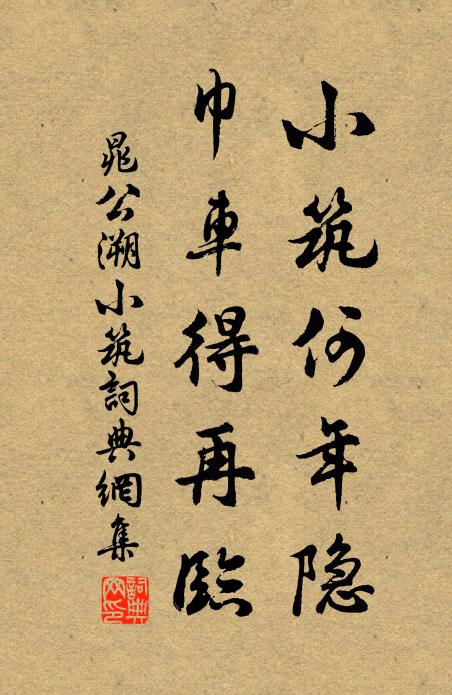 小筑何年隐
巾車得再臨
晁公溯小筑詞典網集
詞典网印